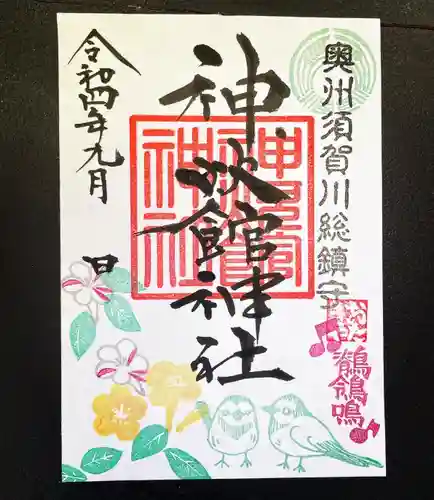 奥州須賀川総鎮守
神炊館神社
神炊館神社
鶺鴒鳴
令和四年九月
日